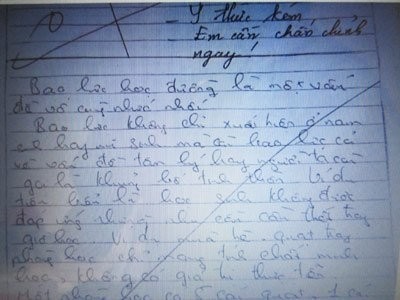 0
- Ý thức kém
- Em cần chấn chỉnh
ngay!
Bạo lực học đường là một vấn
đề vô cùng nhức nhối
Bạo lực không chỉ xuất hiện ở nam
hay nữ sinh mà còn bạo lực cả
về vấn đề tâm lý hay người ta còn
gọi là khủng bố tinh thần. Ví dụ
là học sinh không được
đáp ứng nhu cầu cần thiết hay
giờ học. Ví dụ mùa hè, quạt hay
học chỉ mang tính chất minh
học, không có giá trị thực tế.